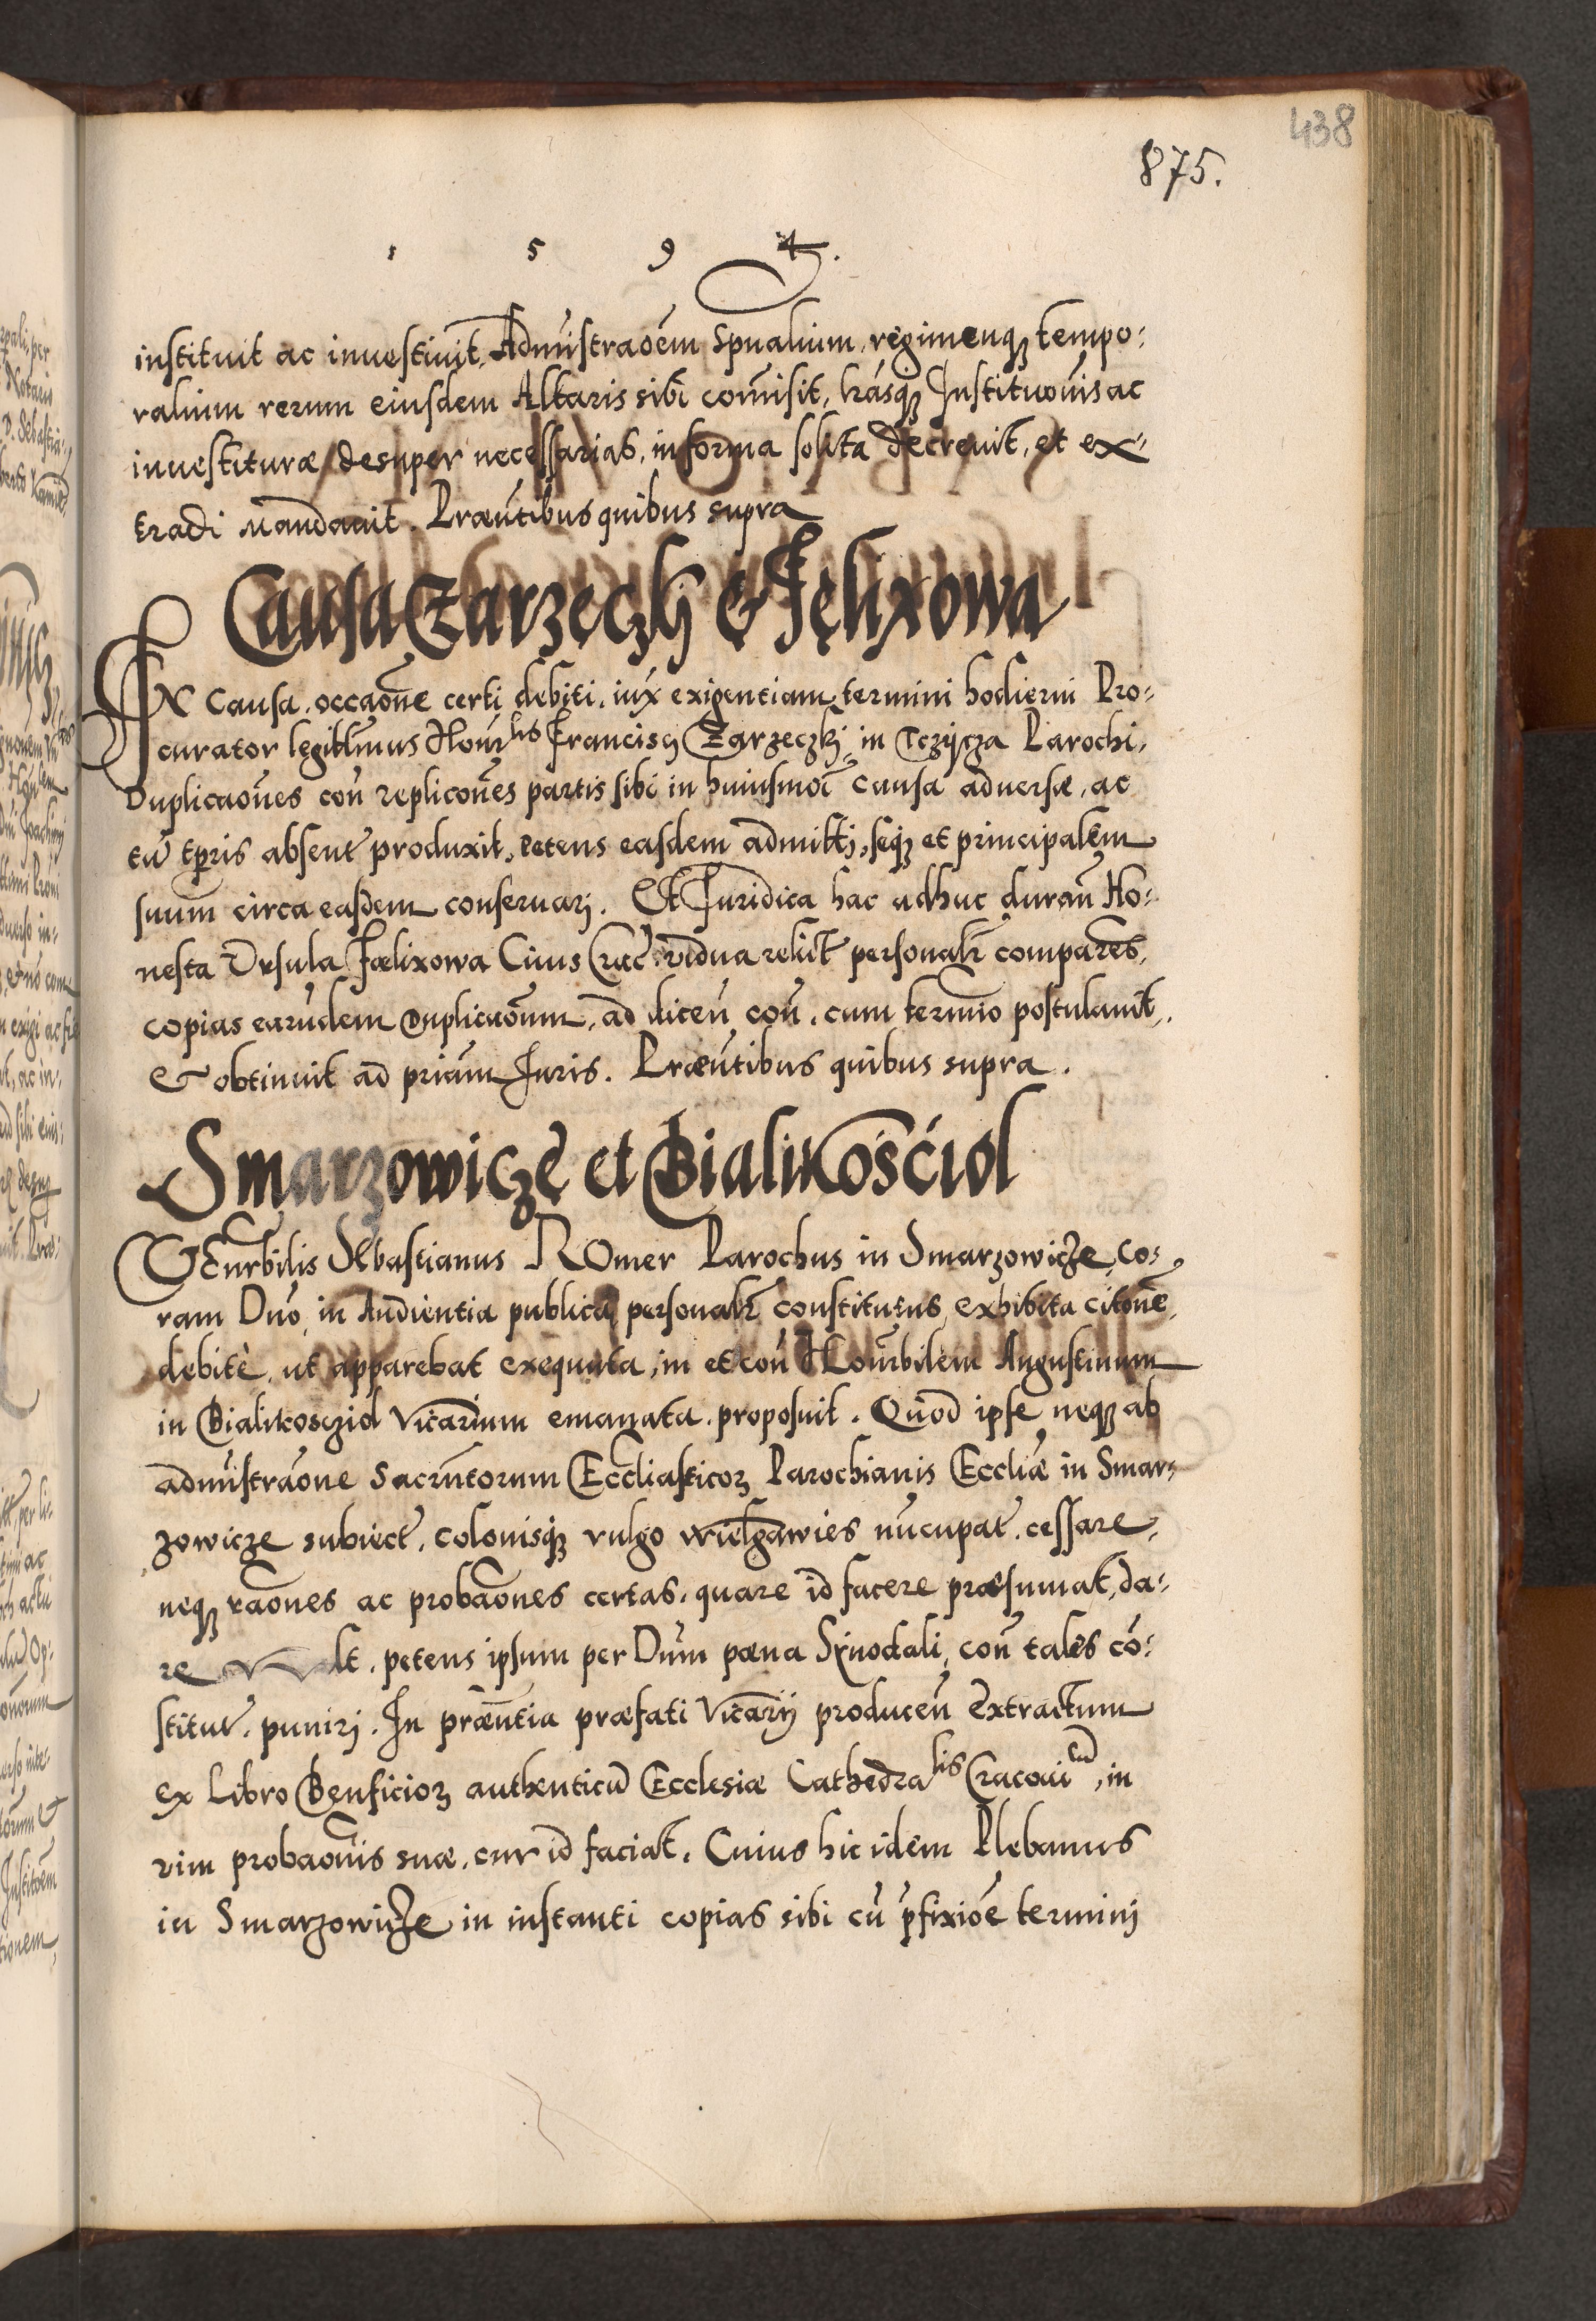 438
875.
1 5 9 4.
instituit ac inuestiuit, Admĩstraõem spũalium, regimenq₃ tempo:
ralium rerum eiusdem Altaris sibi com̃isit, lr̃asq₃ Instituõnis ac
inuestituræ desuper necessarias, in forma solita decreuit, et ex:
tradi mandauit. Præñtibus quibus supra
Causa Zarzeczkj & Fęlixowa
IN Causa, occaõne certi debiti, iux̃ exigentiam termini hodierni Pro:
curator legittimus Honr̃lis Francisci Zarzeczkj in Tczÿcza Parochi,
Duplicaões coñ replicoñes partis sibi in huiusmoi Causa aduersæ, ac
tũ tp̃ris absent̃ produxit, petens easdem admittj, seq₃ et principalem
suum circa easdem conseruarj. Et Juridica hac adhuc durañ Ho:
nesta Vrsula Fælixowa Ciuis Crac̃. vidua relict̃ personalr̃ comparẽs,
copias earũdem Duplicaõnum, ad diceñ coñ. cum termĩo postulauit,
& obtinuit ad priãm Juris. Præñtibus quibus supra.
Smarzowicze et Bialikościol
VEnr̃bilis Sebastianus ROmer Parochus in Smarzowicze, co:
ram Dño, in Audientia publica personalr̃ constitutus, exhibita citõne,
debitè, ut apparebat exequuta, in et coñ Honor̃bilem Augustinum
in Bialikoscziol Vicarium emanata, proposuit. Quod ipse neq₃ ab
admĩstraõne Sacrm̃torum Eccl̃iasticor₃ Parochianis Eccl̃iæ in Smar:
zowicze subiect̃, colonisq₃ vulgo wielgawies nũcupat̃. cessare,
neq₃ raõnes ac probaõnes certas, quare id facere præsumat, da:
re vult, petens ipsum per Dñm pæna Sÿnodali, coñ tales cõ:
stitut̃. punirj. In præñtia præfati Vicarij produceñ Extractum
ex Libro Benficior₃ authenticũ Ecclesiæ Cathedralis Cracouiẽ, in
vim probaõnis suæ, cur id faciat. Cuius hic idem Plebanus
in Smarzowicze in instanti copias sibi cũ p̃fixiõe terminj